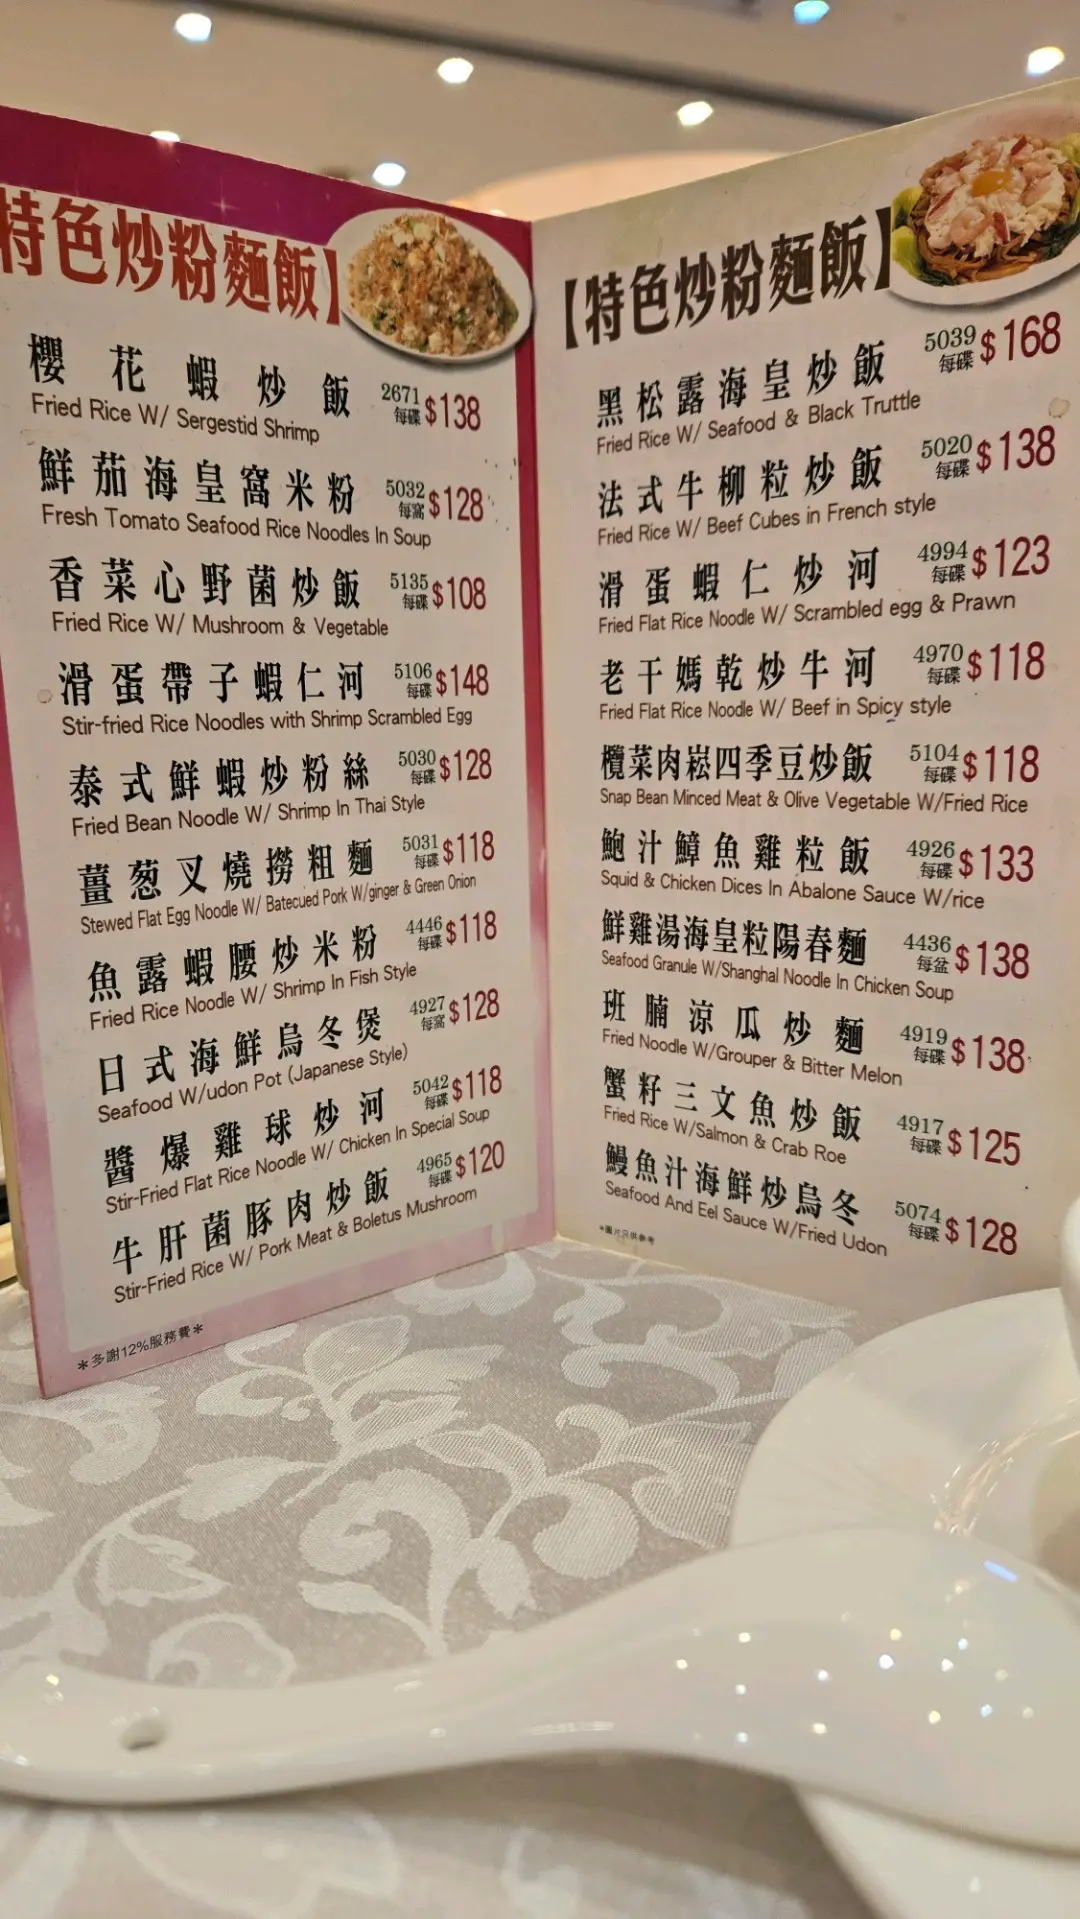 特色炒粉麵飯】
櫻花蝦炒飯 2671 每碟 $138
Fried Rice W/ Sergestid Shrimp
鮮茄海皇窩米粉 5032 每窩 $128
Fresh Tomato Seafood Rice Noodles In Soup
香菜心野菌炒飯 5135 每碟 $108
Fried Rice W/ Mushroom & Vegetable
滑蛋帶子蝦仁河 5106 每碟 $148
Stir-fried Rice Noodles with Shrimp Scrambled Egg
泰式鮮蝦炒粉絲 5030 每碟 $128
Fried Bean Noodle W/ Shrimp In Thai Style
薑葱叉燒撈粗麵 5031 每碟 $118
Stewed Flat Egg Noodle W/ Batecued Pork W/ginger & Green Onion
魚露蝦腰炒米粉 4446 每碟 $118
Fried Rice Noodle W/ Shrimp In Fish Style
日式海鮮烏冬煲 4927 每窩 $128
Seafood W/udon Pot (Japanese Style)
醬爆雞球炒河 5042 每碟 $118
Stir-Fried Flat Rice Noodle W/ Chicken In Special Soup
牛肝菌豚肉炒飯 4965 每碟 $120
Stir-Fried Rice W/ Pork Meat & Boletus Mushroom
*多謝12%服務費*
【特色炒粉麵飯】
黑松露海皇炒飯 5039 每碟 $168
Fried Rice W/ Seafood & Black Truttle
法式牛柳粒炒飯 5020 每碟 $138
Fried Rice W/ Beef Cubes in French style
滑蛋蝦仁炒河 4994 每碟 $123
Fried Flat Rice Noodle W/ Scrambled egg & Prawn
老干媽乾炒牛河 4970 每碟 $118
Fried Flat Rice Noodle W/ Beef in Spicy style
欖菜肉崧四季豆炒飯 5104 每碟 $118
Snap Bean Minced Meat & Olive Vegetable W/Fried Rice
鮑汁鱆魚雞粒飯 4926 每碟 $133
Squid & Chicken Dices In Abalone Sauce W/rice
鮮雞湯海皇粒陽春麵 4436 每盆 $138
Seafood Granule W/Shanghai Noodle In Chicken Soup
班腩涼瓜炒麵 4919 每碟 $138
Fried Noodle W/Grouper & Bitter Melon
蟹籽三文魚炒飯 4917 每碟 $125
Fried Rice W/Salmon & Crab Roe
鰻魚汁海鮮炒烏冬 5074 每碟 $128
Seafood And Eel Sauce W/Fried Udon
*圖片只供參考